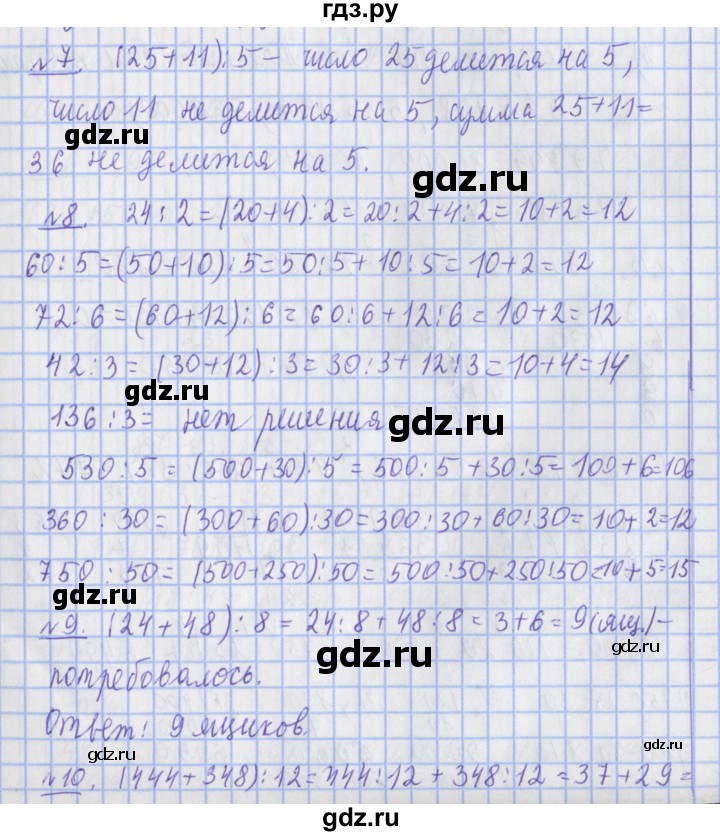 гдз.ру
№7. (25+11):5 – число 25 делится на 5,
число 11 не делится на 5, сумма 25+11=
gdz.ru
36 не делится на 5.
gdz.ru
№8. 24:2=(20+4):2=20:2+4:2=10+2=12
60:5=(50+10):5=50:5+10:5=10+2=12
72:6=(60+12):6=60:6+12:6=10+2=12
42:3=(30+12):3=30:3+12:3=10+4=14
gdz.ru
136:3= нет решения
gdz.ru
530:5=(500+30):5=500:5+30:5=100+6=106
360:30=(300+60):30=300:30+60:30=10+2=12
750:50=(500+250):50=500:50+250:50=10+5=15
gdz.ru
№9. (24+48):8=24:8+48:8=3+6=9(ящ.)–
gdz.ru
gdz.ru
потребовалось.
Ответ: 9 ящиков.
gdz.ru
gdz.ru
№10. (444+348):12=444:12+348:12=37+29=
gdz.ru